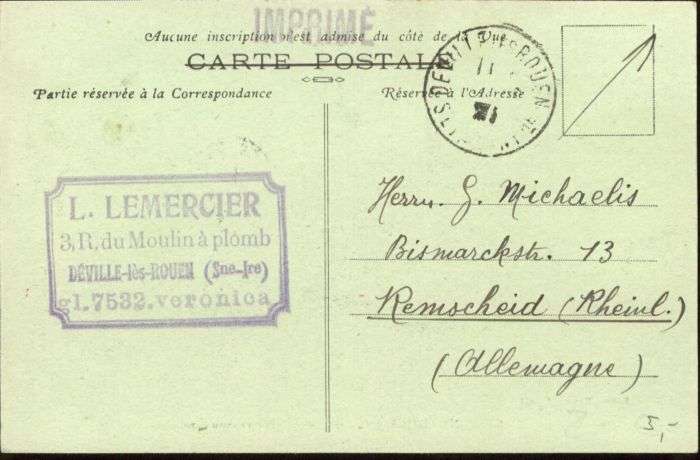 IMPRIMÉ
Aucune inscription n'est admise du côté de la Vue
CARTE POSTALE
Partie réservée à la Correspondance
Réservée à l'Adresse
11
L. LEMERCIER
3, R. du Moulin à plomb
DÉVILLE-lès-ROUEN (Sne-Ire)
gl.7532.veronica
Herrn. G. Michaelis
Bismarckstr. 13
Remscheid (Rheinl.)
(Allemagne)
5,-